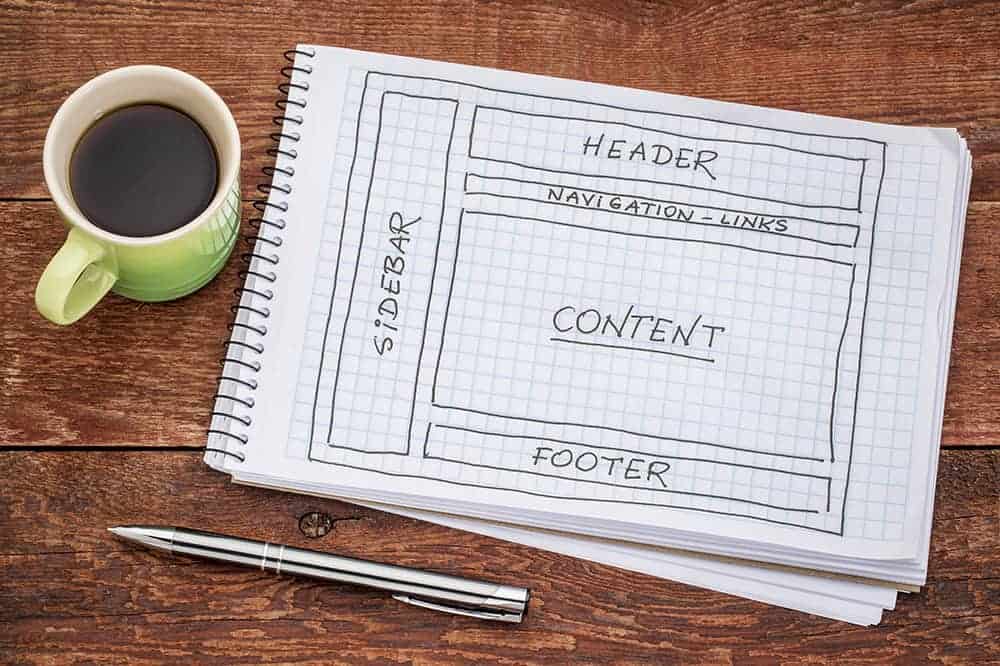 HEADER
NAViGATiON - LINKS
SiDEBAR
CONTENT
FOOTER